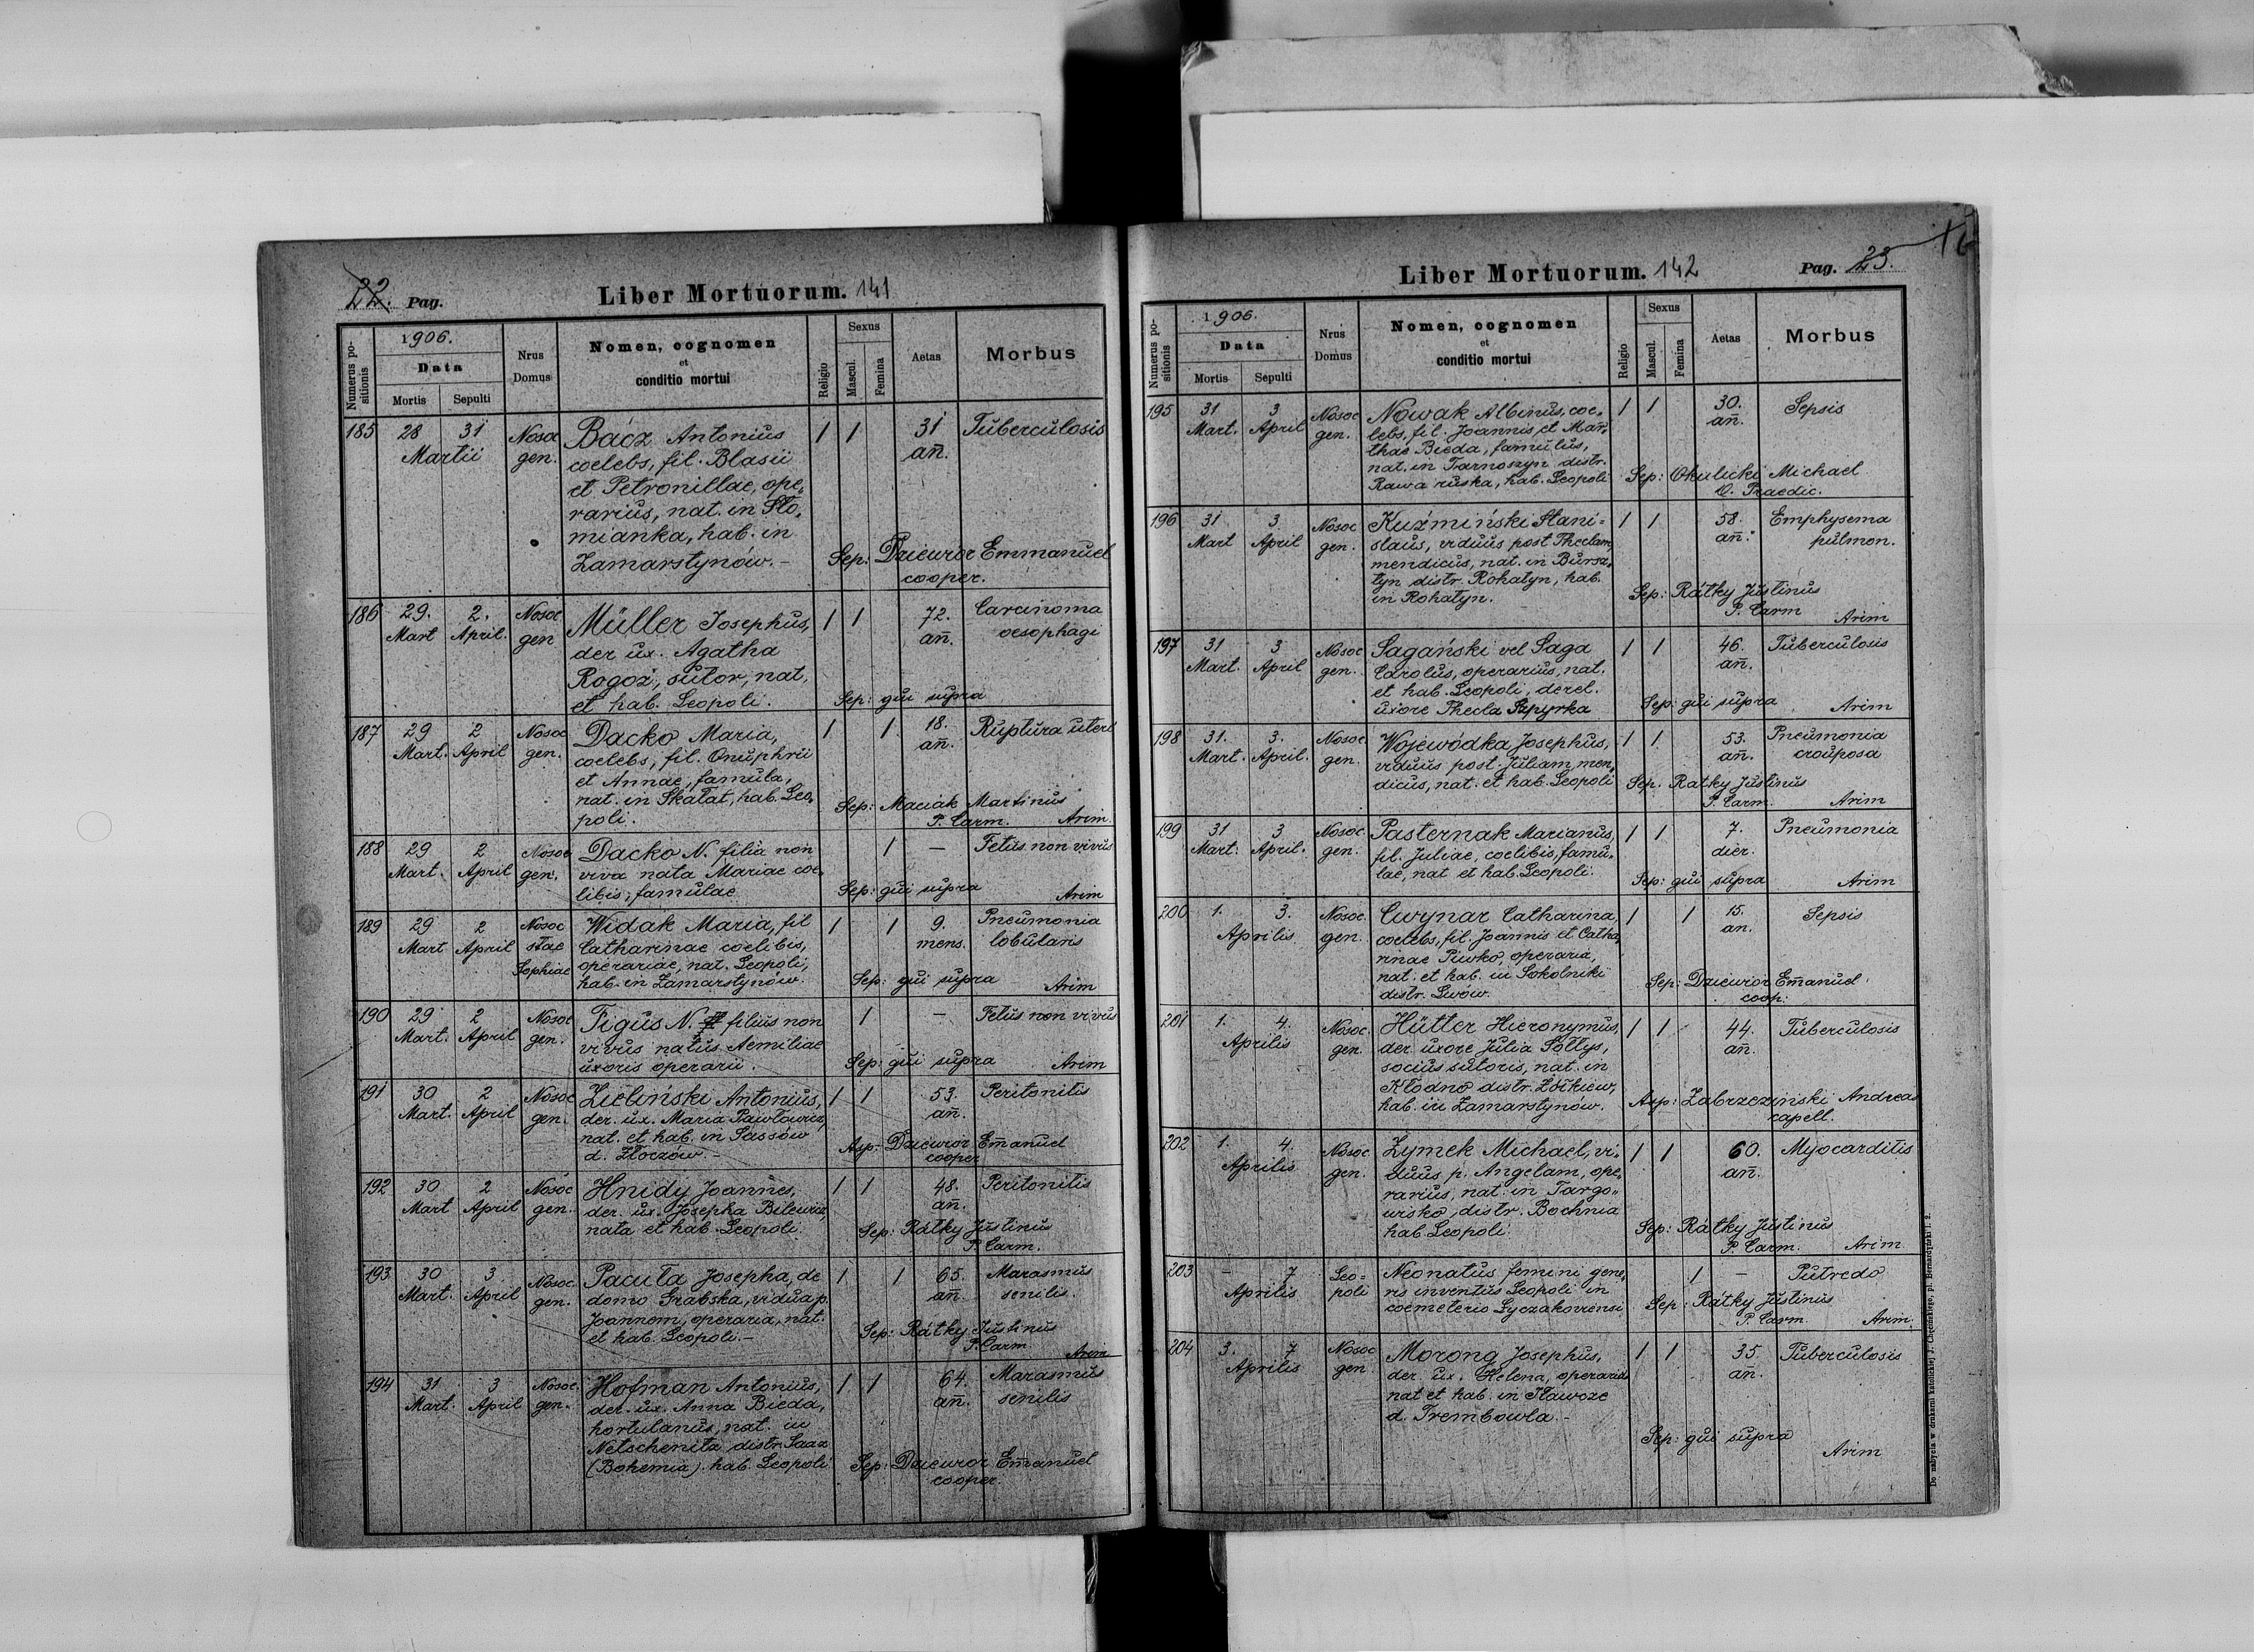 22. Pag.
Liber Mortuorum. 141
Numerus positionis
1906.
Data
Mortis
Sepulti
Nrus Domus
Nomen, cognomen
et
conditio mortui
Religio
Sexus
Mascul.
Femina
Aetas
Morbus
185 28 31 Nosoc Bacz Antonius 1 1 31 Tuberculosis
Martii gen. coelebs, fil. Blasii añ.
et Petronillae, ope„
rarius, nat. in Sło„
mianka, hab. in
Zamarstynów.– Sep: Dziewior Emmanuel
cooper.
186 29. 2. Nosoc Müller Josephus, 1 1 72. Carcinoma
Mart April. gen der ux. Agatha añ. oesophagi
Rogoż, sutor, nat,
et hab. Leopoli. Sep: qui supra
187 29 2 Nosoc Dacko Maria, 1 1 18. Ruptura uteri
Mart. April gen. coelebs, fil. Onuphrii añ.
et Annae, famula,
nat. in Skałat, hab. Leo„
poli. Sep: Maciak Martinus
P. Carm. Arim.
188 29 2 Nosoc Dacko N. filia non 1 — Fetus non vivus
Mart. April gen. viva nata Mariae coe„
libis, famulae Sep: qui supra Arim
189 29 2 Nosoc Widak Maria, fil 1 1 9. Pneumonia
Mart April stae Catharinae coelibis, mens. lobularis
Sophiae operariae, nat. Leopoli,
hab. in Zamarstynów. Sep: qui supra Arim
190 29 2 Nosoc Figus N. filius non 1 — Fetus non vivus
Mart. April gen. vivus natus Aemiliae
uxoris operarii. Sep: qui supra Arim
191 30 2 Nosoc Zieliński Antonius, 1 1 53. Peritonitis
Mart. April gen. der. ux. Maria Pawłowicz, añ.
nat. et hab. in Sassów
d. Złoczów.– Asp: Dziewior Em̄anuel
cooper
192 30 2 Nosoc Hnidy Joannes, 1 1 48. Peritonitis
Mart April gen. der. ux. Josepha Bilewicz, añ.
nata et hab. Leopoli. Sep: Rátky Justinus
P. Carm.
193 30 3 Nosoc. Pacuła Josepha, de 1 1 65. Marasmus
Mart. April gen. domo Grabska, vidua p. añ. senilis.
Joannem, operaria, nat.
et hab. Leopoli.– Sep: Rátky Justinus
P. Carm Arim
194 31 3 Nosoc. Hofman Antonius, 1 1 64. Marasmus
Mart. April gen. der. ux. Anna Bieda, añ. senilis
hortulanus, nat. in
Netschenitz distr. Saaz
(Bohemia). hab. Leopoli Sep: Dziewior Em̄anuel
cooper.
Liber Mortuorum. 142
Pag. 23.
Numerus positionis
1906.
Data
Mortis
Sepulti
Nrus Domus
Nomen, cognomen
et
conditio mortui
Religio
Sexus
Mascul.
Femina
Aetas
Morbus
195 31 3 Nosoc Nowak Albinus, coe„ 1 1 30. Sepsis
Mart. April gen. lebs, fil. Joannis et Mar„ añ.
thae Bieda, famulus,
nat. in Tarnoszyn distr.
Rawa ruska, hab. Leopoli Sep: Okulicki Michael
O. Praedic.
196 31 3 Nosoc Kuźmiński Stani= 1 1 58. Emphysema
Mart April gen. slaus, viduus post Theclam, añ. pulmon.
mendicus, nat. in Bursz„
tyn distr. Rohatyn, hab.
in Rohatyn. Sep: Rátky Justinus
P. Carm Arim
197 31 3 Nosoc Sagański vel Saga 1 1 46. Tuberculosis
Mart. April gen. Carolus, operarius, nat. añ.
et hab. Leopoli, derel.
uxore Thecla Szpyrka Sep: qui supra Arim
198 31. 3. Nosoc. Wojewódka Josephus, 1 1 53. Pneumonia
Mart. April. gen. viduus post Juliam, men„ añ. crouposa
dicus, nat. et hab. Leopoli Sep. Ratky Justinus
P. Carm. Arim
199 31 3 Nosoc. Pasternak Marianus, 1 1 7. Pneumonia
Mart. April. gen. fil. Juliae, coelibis, famu„ dier.
lae, nat et hab. Leopoli. Sep: qui supra Arim
200 1. 3. Nosoc. Cwynar Catharina, 1 1 15. Sepsis
Aprilis gen. coelebs, fil. Joannis et Catha„ an.
rinae Piwko, operaria,
nat. et hab. in Sokolniki
distr. Lwów. Sep: Dziewior Em̄anuel
coop:
201 1. 4. Nosoc. Hütter Hieronymus, 1 1 44. Tuberculosis
Aprilis gen. der uxore Julia Sołtys, añ.
socius sutoris, nat. in
Kłodno distr. Żółkiew,
hab. in Zamarstynów. Asp: Zabrzeziński Andreas
capell.
202 1. 4. Nosoc Zymek Michael, vi= 1 1 60. Myocarditis
Aprilis gen. duus p. Angelam, ope„ añ.
rarius, nat. in Targo„
wisko, distr. Bochnia
hab. Leopoli. Sep: Rátky Justinus
P. Carm. Arim
203 – 7 Leo= Neonatus femini gene„ 1 — Putredo
Aprilis poli ris inventus Leopoli in
coemeterio Lyczakoviensi Sep: Rátky Justinus
P. Carm. Arim.
204 3. 7 Nosoc Morong Josephus, 1 1 35 Tuberculosis
Aprilis gen der. ux. Helena, operarius añ.
nat et hab. in Iławcze
d. Trembowla.–
Sep: qui supra
Arim
Do nabycia w drukarni katolickiej J. Chęcińskiego, pl. Bernardyński l. 2.